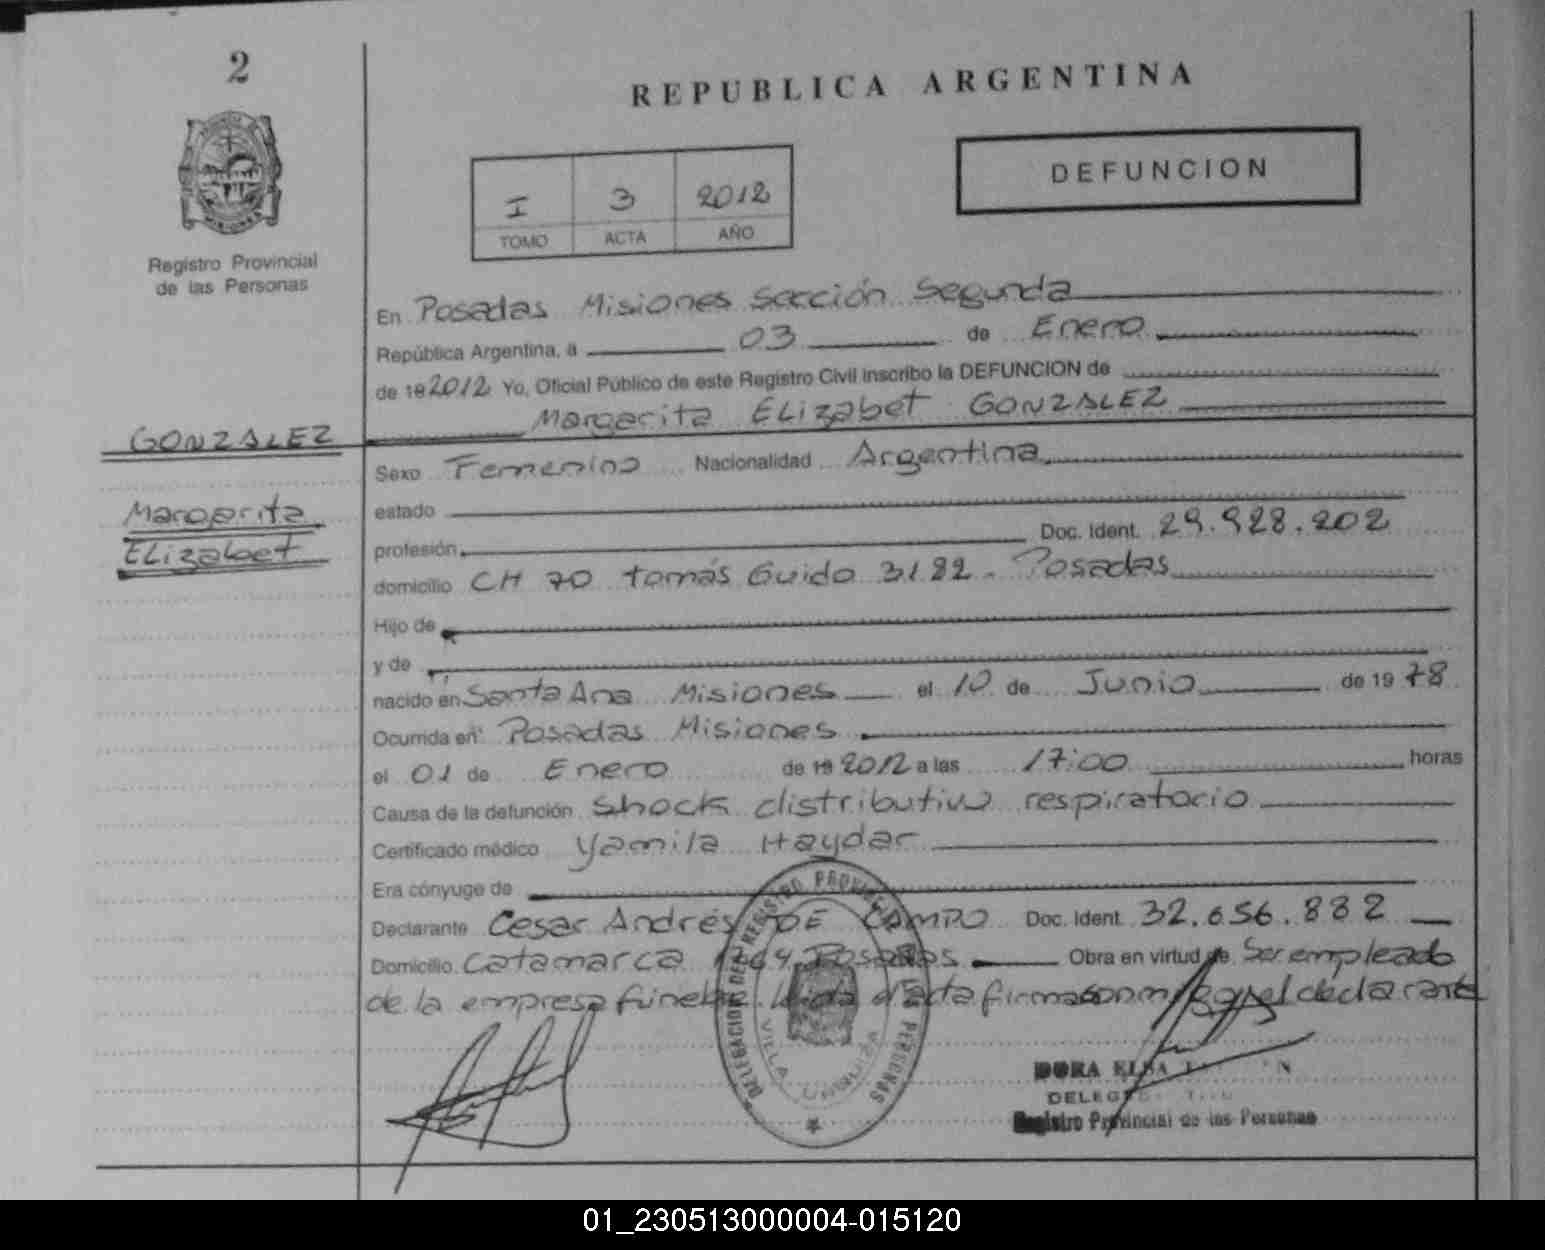 2
REPUBLICA ARGENTINA
DEFUNCION
I 3 2012
TOMO ACTA AÑO
Registro Provincial
de las Personas
En Posadas Misiones Sección Segunda
República Argentina, a 03 de Enero
de 19 2012 Yo, Oficial Público de este Registro Civil inscribo la DEFUNCION de
Margarita ELizabet GONZALEZ
GONZALEZ
Margarita
ELizabet
Sexo Femenino Nacionalidad Argentina
estado
profesión Doc. Ident. 29.928.202
domicilio CH 70 tomás Guido 3182. Posadas
Hijo de
y de
nacido en Santa Ana Misiones el 10 de Junio de 19 78
Ocurrida en Posadas Misiones
el 01 de Enero de 19 2012 a las 17:00 horas
Causa de la defunción Shock distributivo respiratorio
Certificado médico Yamila Haydar
Era cónyuge de
Declarante Cesar Andrés DE CAMPO Doc. Ident. 32.656.882
Domicilio Catamarca Posadas Obra en virtud de Ser empleado
de la empresa fúnebre. Leída el acta firma declarante
DELEGACION DEL REGISTRO PROVINCIAL PERSONAS
VILLA URQUIZA
DORA ELSA
Registro Provincial de las Personas
01_230513000004-015120